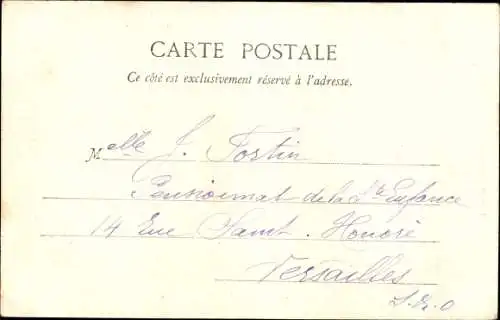 CARTE POSTALE
Ce côté est exclusivement réservé à l'adresse.
Melle J. Fortin
Pensionnat de la Ste Enfance
14 Rue Saint-Honoré
Versailles
S. & O